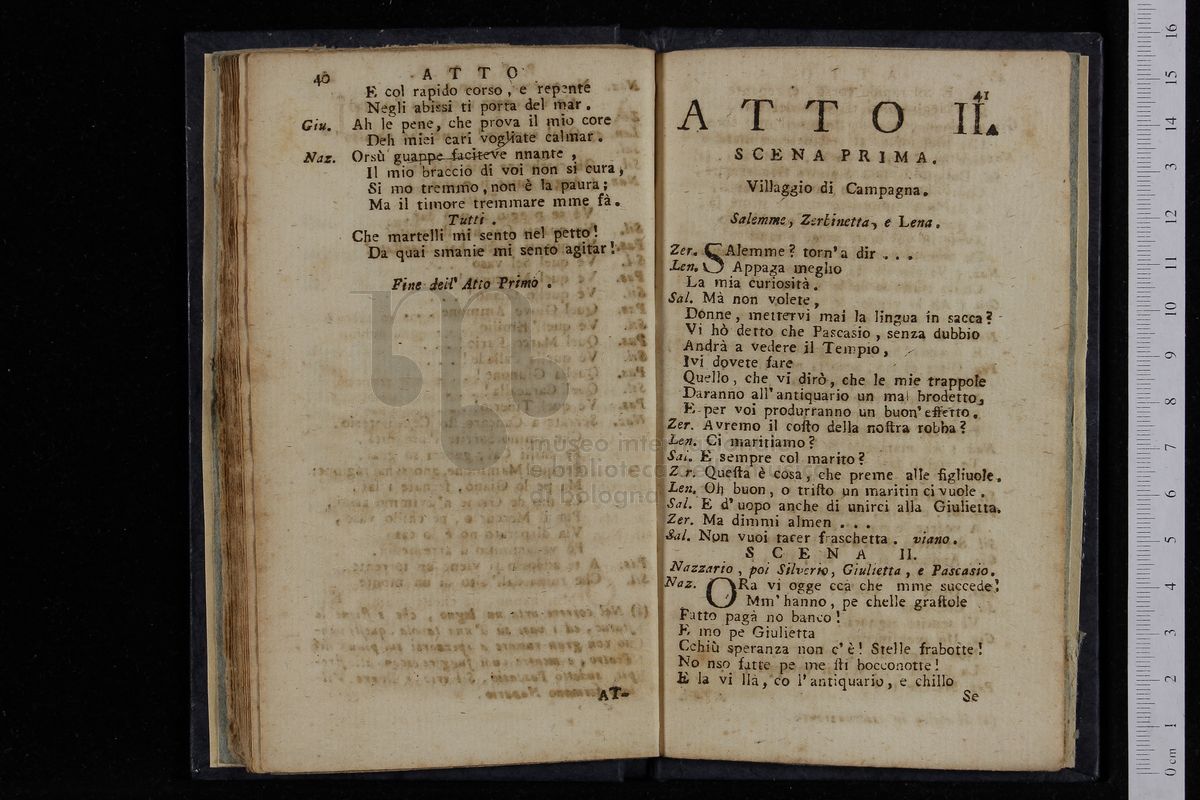 40
A T T O
E col rapido corso, e repente
Negli abissi ti porta del mar.
Giu. Ah le pene, che prova il mio core
Deh miei cari vogliate calmar.
Naz. Orsù guappe faciteve nnante,
Il mio braccio di voi non si cura,
Si mo tremmo, non è la paura;
Ma il timore tremmare mme fà.
Tutti.
Che martelli mi sento nel petto!
Da quai smanie mi sento agitar!
Fine dell' Atto Primo.
AT-
41
ATTO II.
SCENA PRIMA.
Villaggio di Campagna.
Salemme, Zerbinetta, e Lena.
Zer. SAlemme? torn' a dir . . .
Len. Appaga meglio
La mia curiosità.
Sal. Mà non volete,
Donne, mettervi mai la lingua in sacca?
Vi hò detto che Pascasio, senza dubbio
Andrà a vedere il Tempio,
Ivi dovete fare
Quello, che vi dirò, che le mie trappole
Daranno all' antiquario un mal brodetto,
E per voi produrranno un buon' effetto.
Zer. Avremo il costo della nostra robba?
Len. Ci maritiamo?
Sal. E sempre col marito?
Zer. Questa è cosa, che preme alle figliuole.
Len. Oh buon, o tristo un maritin ci vuole.
Sal. E d' uopo anche di unirci alla Giulietta.
Zer. Ma dimmi almen . . .
Sal. Non vuoi tacer fraschetta. viano.
SCENA II.
Nazzario, poi Silverio, Giulietta, e Pascasio.
Naz. ORa vi ogge cca che mme succede!
Mm' hanno, pe chelle grastole
Fatto pagà no banco!
E mo pe Giulietta
Cchiù speranza non c' è! Stelle frabotte!
No nso fatte pe me sti bocconotte!
E la vi llà, co l' antiquario, e chillo
Se
museo inte
e biblioteca
di bologna
0 cm 1 2 3 4 5 6 7 8 9 10 11 12 13 14 15 16